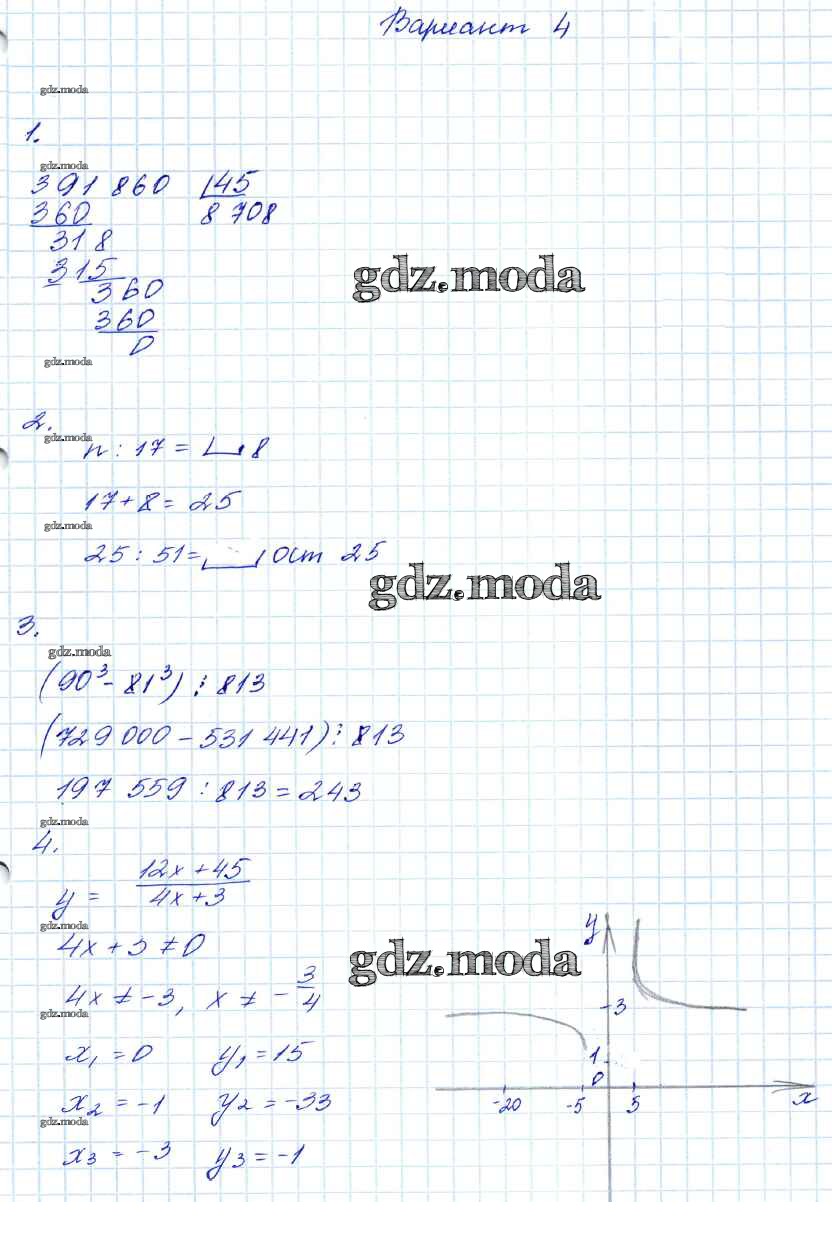 Вариант 4
gdz.moda
1.
gdz.moda
391 860 45
360 8 708
318
315
360
360
0
gdz.moda
gdz.moda
2.
gdz.moda
n : 17 = 8
17 + 8 = 25
gdz.moda
25 : 51 = ост 25
gdz.moda
3.
gdz.moda
(90³ - 81³) ⋮ 813
(729 000 - 531 441) ⋮ 813
197 559 : 813 = 243
gdz.moda
4.
y = (12x + 45)/(4x + 3)
gdz.moda
4x + 3 ≠ 0
gdz.moda
4x ≠ -3, x ≠ - 3/4
gdz.moda
x₁ = 0 y₁ = 15
x₂ = -1 y₂ = -33
gdz.moda
x₃ = -3 y₃ = -1
y
3
1
0
-20 -5 5 x